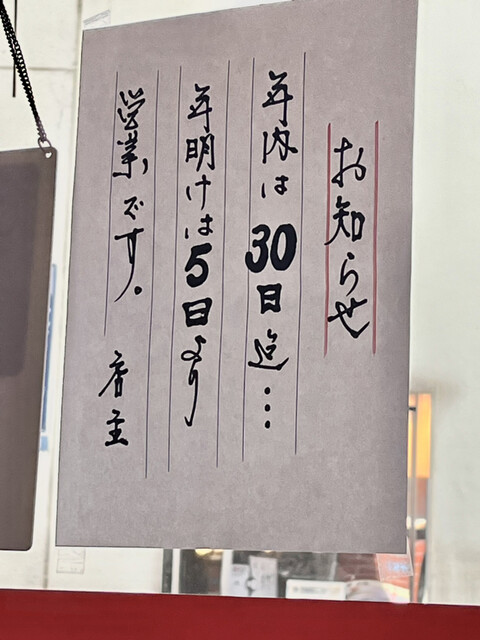 お知らせ
年内は30日迄…
年明けは5日より
営業です。
店主